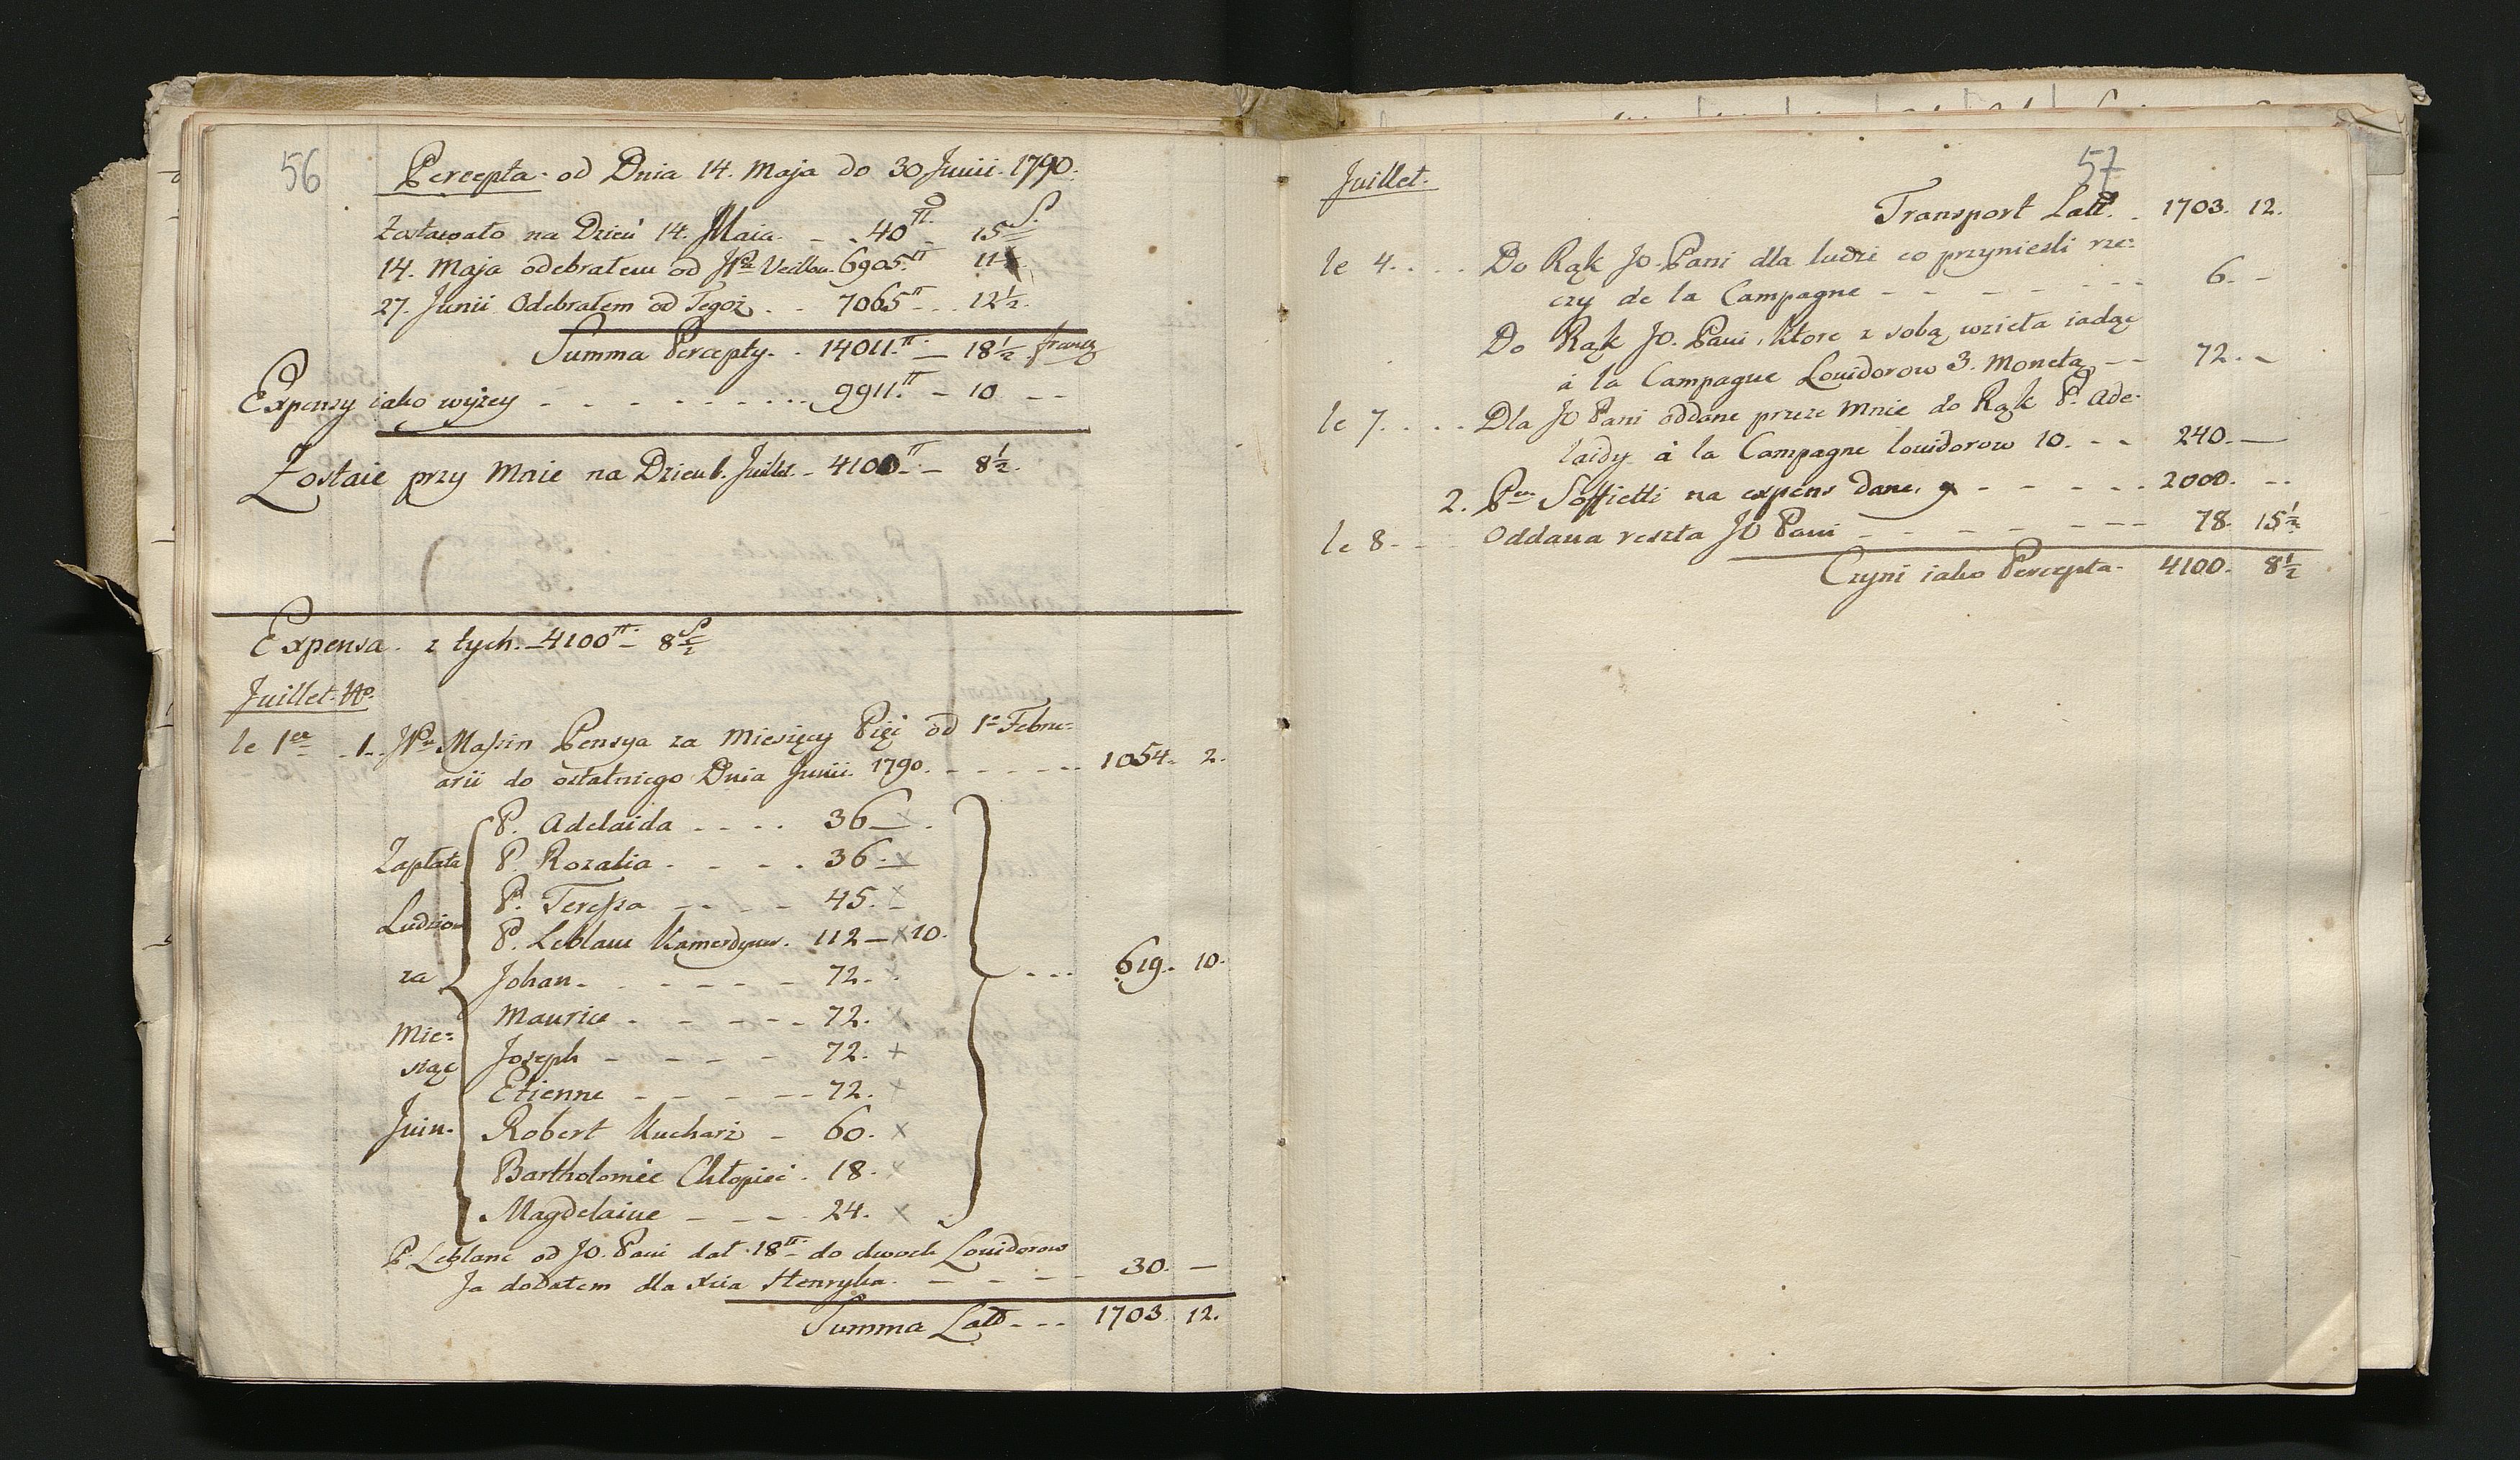 56
Percepta od Dnia 14. Maja do 30 Junii. 1790.
Zostawało na Dzień 14. Maia. - - 40 ₶. 15 S.
14. Maja odebrałem od JPa 6905.₶ 11
27. Junii Odebrałem od Tegoż . . 7065 ₶ - . . 12½.
Summa Percepty. . 14011.₶ — 18½. franc
Expensy iako wyżey - - - - - - . . . 9911.₶ - 10 - -
Zostaie przy Mnie na Dzień 1. Juillet. - 4100 ₶ - 8½.
Expensa. z tych. - 4100 ₶ - 8 ½
Juillet. No.
le 1er 1. JPa Massin Pensya za Miesięcy Pięć od 1a Febru=
arii do ostatniego Dnia Junii. 1790. - - - - - - 1054. 2.
Zapłata
Ludziom
za
Mie=
siąc
Juin.
P. Adelaida - - - . 36 — x .
P. Rozalia - - - - . 36. x
P. Teressa - - - - 45. x
P. Leblanc Kamerdyner. 112 — x 10.
Johan. - - - - - - 72. x
Maurice - - - - - - 72. x
Joseph - - - - - 72. +
Etienne - - - - - - 72. x
Robert Kucharz - 60. x
Bartholomée Chłopiec . 18. x
Magdelaine - - - . 24. x
. . . 619. 10.
P. Leblanc od JO. Pani dał 18 ₶ - do dwoch Louidorow
Ja dodałem dla Xcia Henryka. - - - - 30. —
Summa Latt - - - 1703. 12.
57
Juillet.
Transport Latt. . 1703. 12.
le 4. . . . Do Rąk JO. Pani dla ludzi co przynieśli rze=
czy de la Campagne - - - - - - - - 6. -
Do Rąk JO. Pani, ktore z sobą wzieła iadąc
à la Campagne Louidorow 3. Monetą - - 72. -
le 7. . . . Dla JO Pani oddane przeze Mnie do Rąk P. Ade=
laidy à la Campagne louidorow 10. - - 240. —
2. Soffietti na expens dane, - - - - - 2000. - -
le 8 - - Oddana reszta JO Pani - - - - - - 78. 15½
Czyni iako Percepta. 4100. 8½